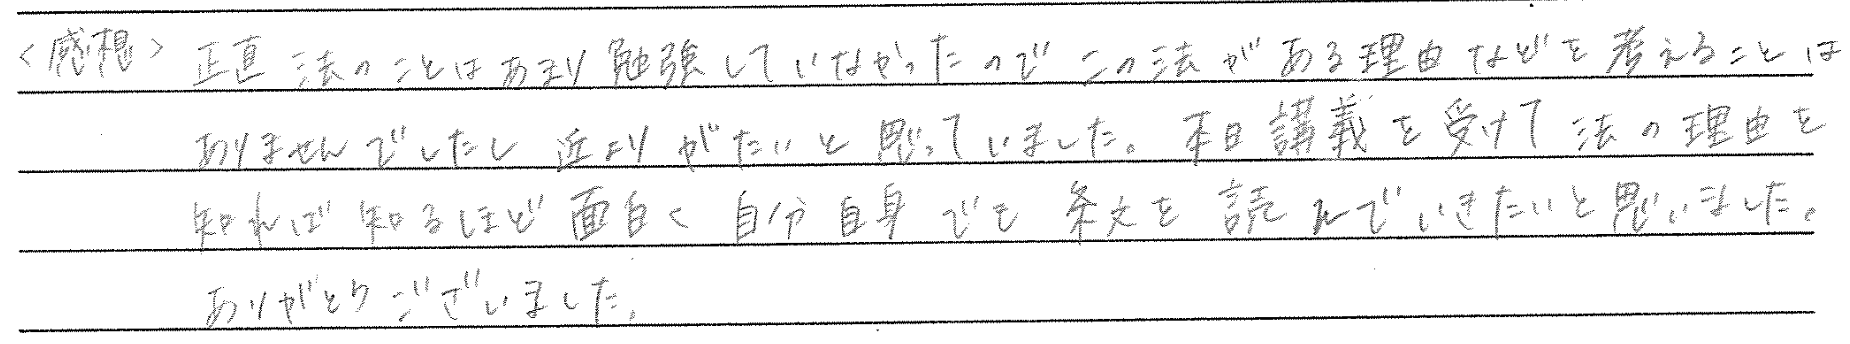 〈感想〉 正直 法のことはあまり勉強していなかったので この法がある理由などを考えることは
ありませんでしたし 近よりがたいと思っていました。本日講義を受けて 法の理由を
知れば知るほど面白く 自分自身でも 条文を読んでいきたいと思いました。
ありがとうございました。